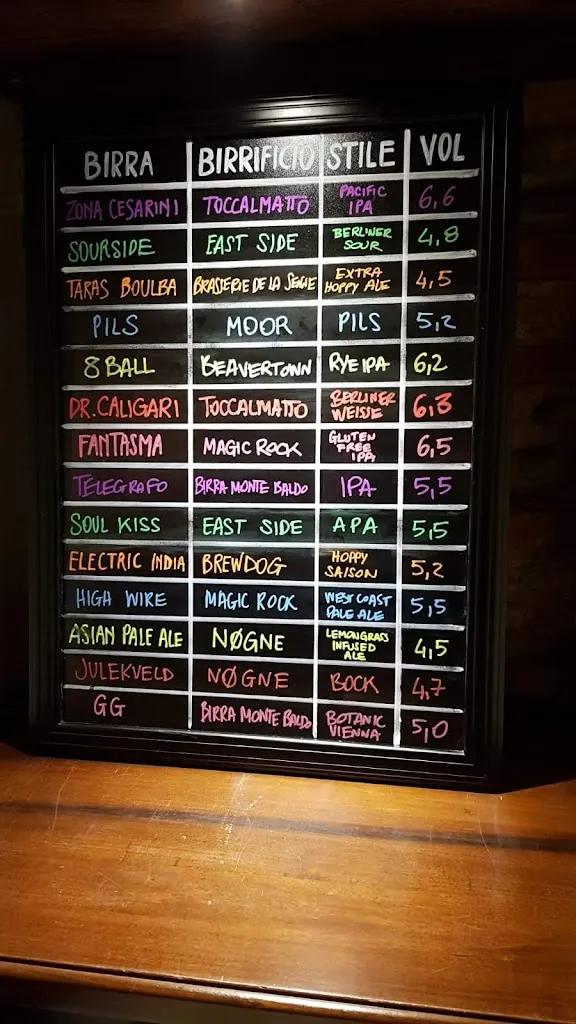 BIRRA BIRRIFICIO STILE VOL
ZONA CESARINI TOCCALMATTO PACIFIC IPA 6,6
SOURSIDE EAST SIDE BERLINER SOUR 4,8
TARAS BOULBA BRASSERIE DE LA SENNE EXTRA HOPPY ALE 4,5
PILS MOOR PILS 5,2
8 BALL BEAVERTOWN RYE IPA 6,2
DR. CALIGARI TOCCALMATTO BERLINER WEISSE 6,3
FANTASMA MAGIC ROCK GLUTEN FREE IPA 6,5
TELEGRAFO BIRRA MONTE BALDO IPA 5,5
SOUL KISS EAST SIDE APA 5,5
ELECTRIC INDIA BREWDOG HOPPY SAISON 5,2
HIGH WIRE MAGIC ROCK WEST COAST PALE ALE 5,5
ASIAN PALE ALE NØGNE LEMONGRASS INFUSED ALE 4,5
JULEKVELD NØGNE BOCK 4,7
GG BIRRA MONTE BALDO BOTANIC VIENNA 5,0